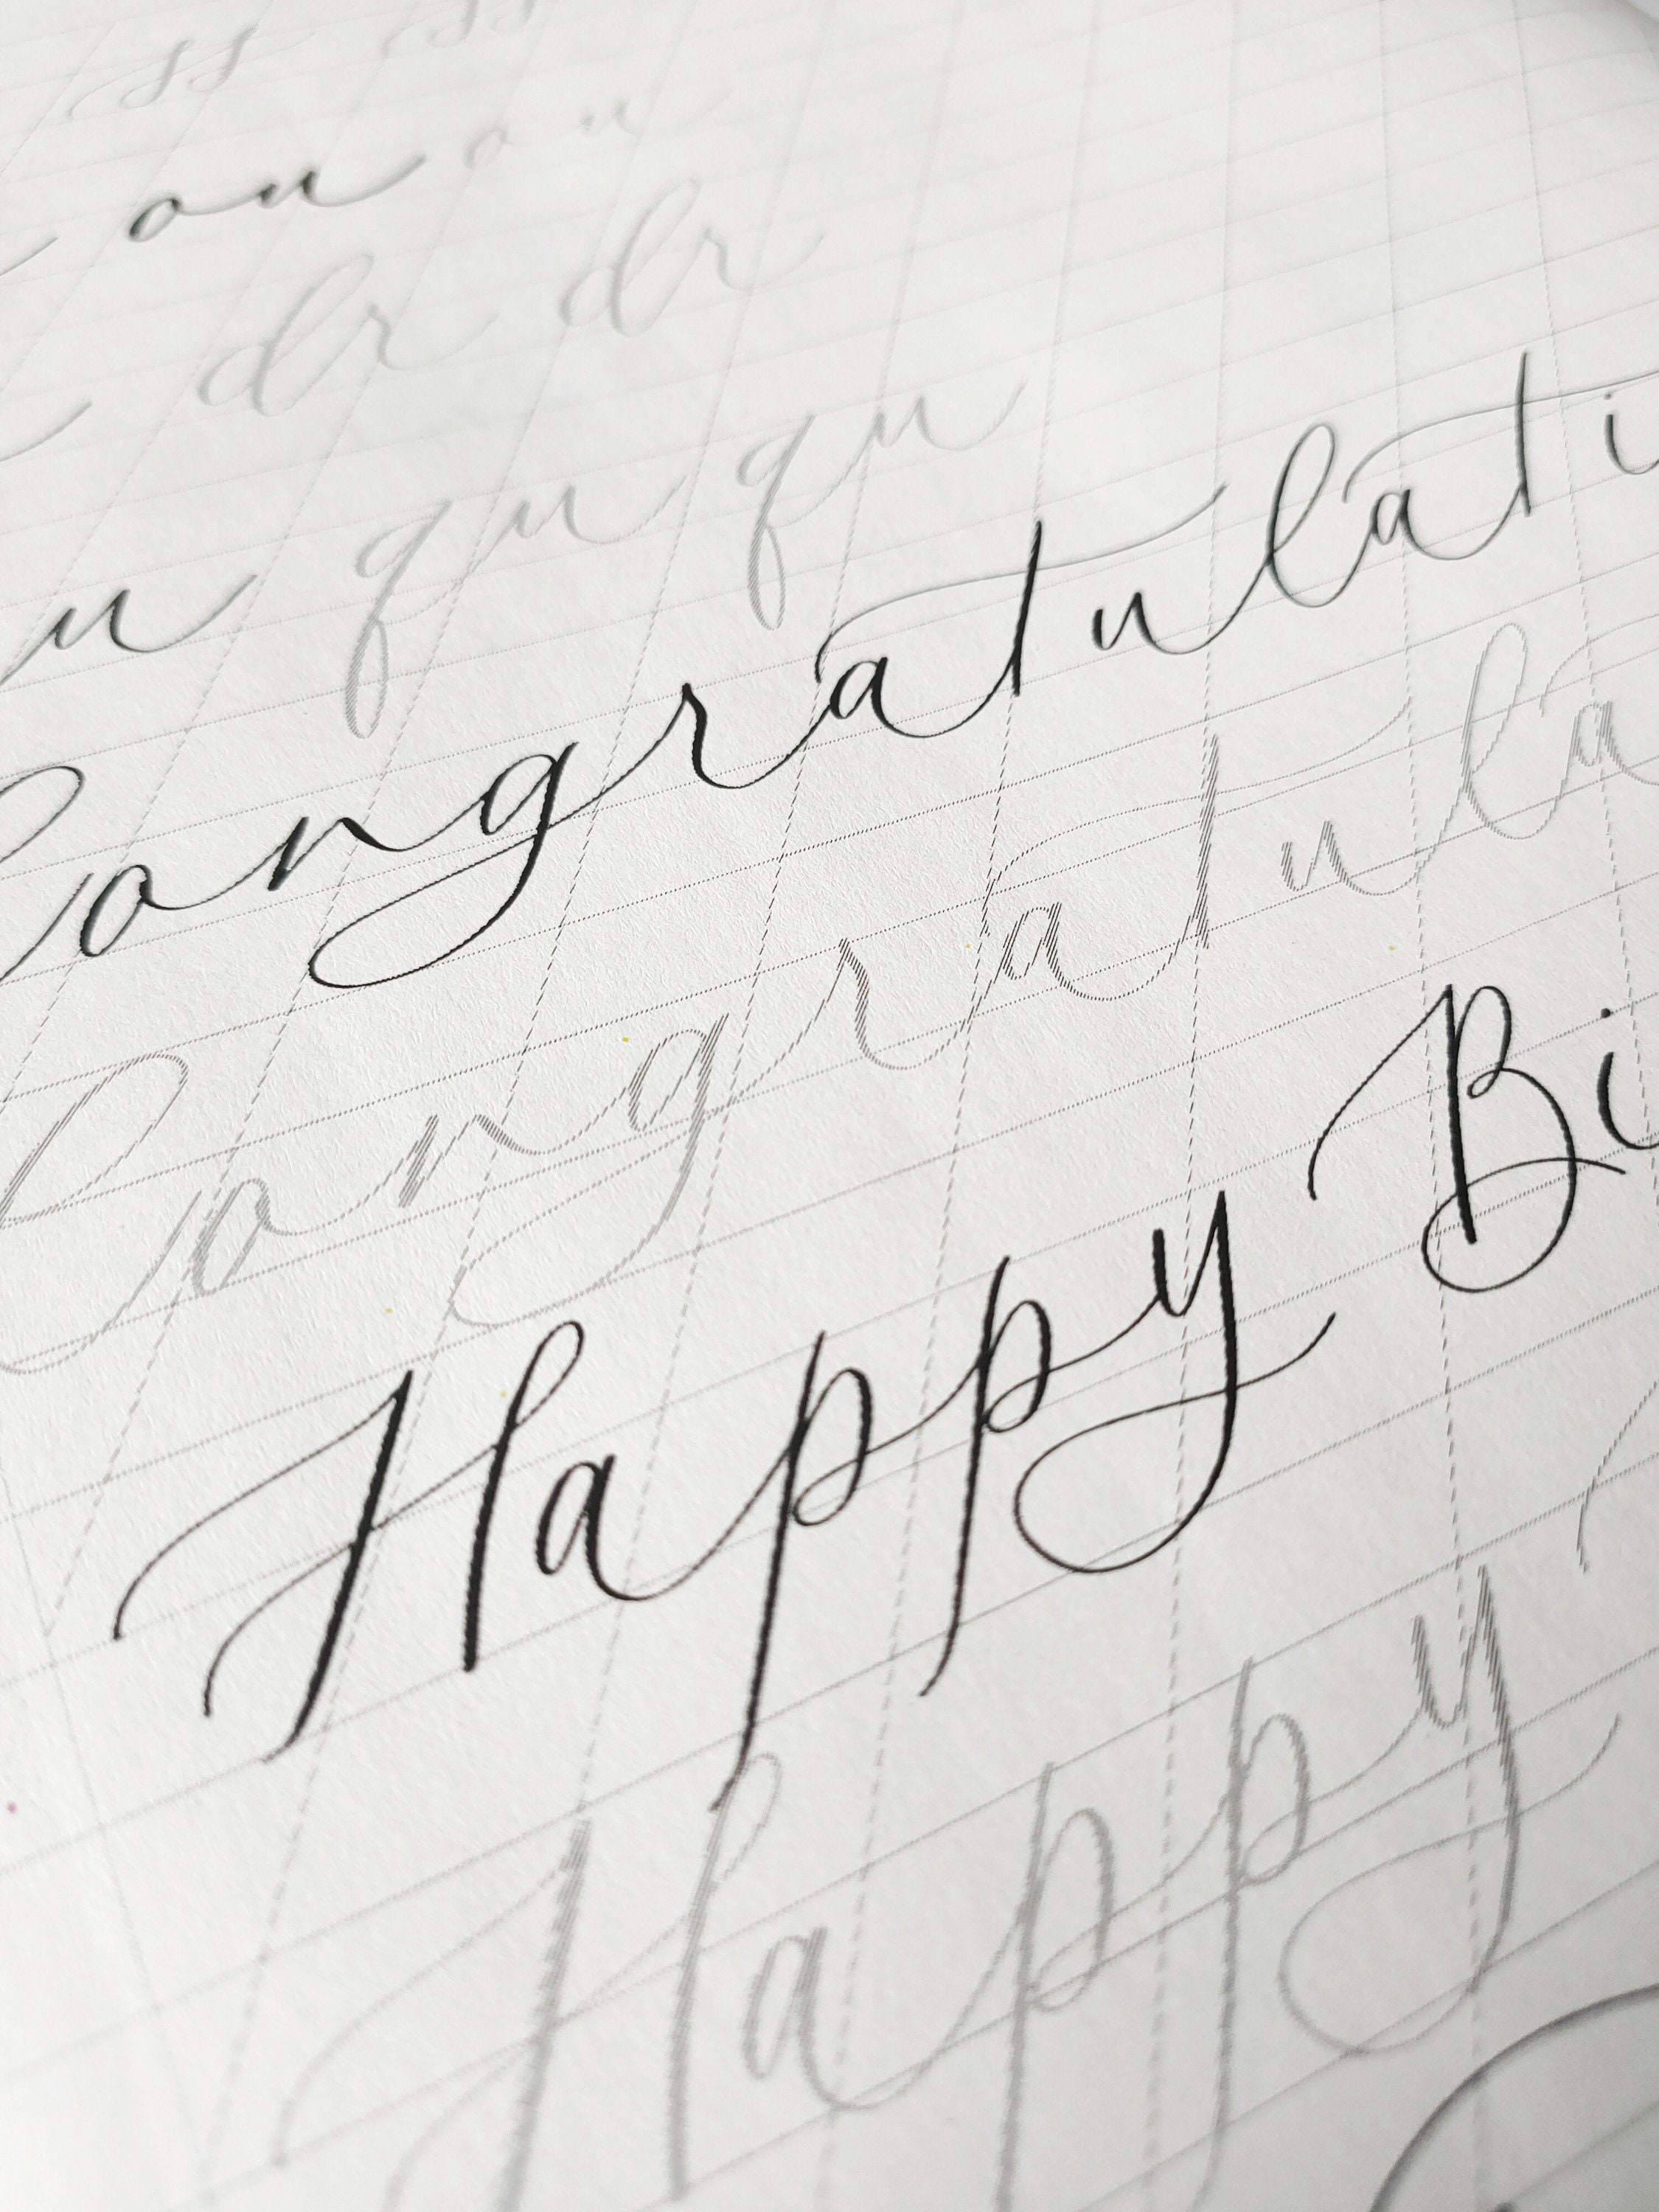 ss ss
ou ou
dr dr
u qu qu
Congratulati
Congratula
Happy Bi
Happy